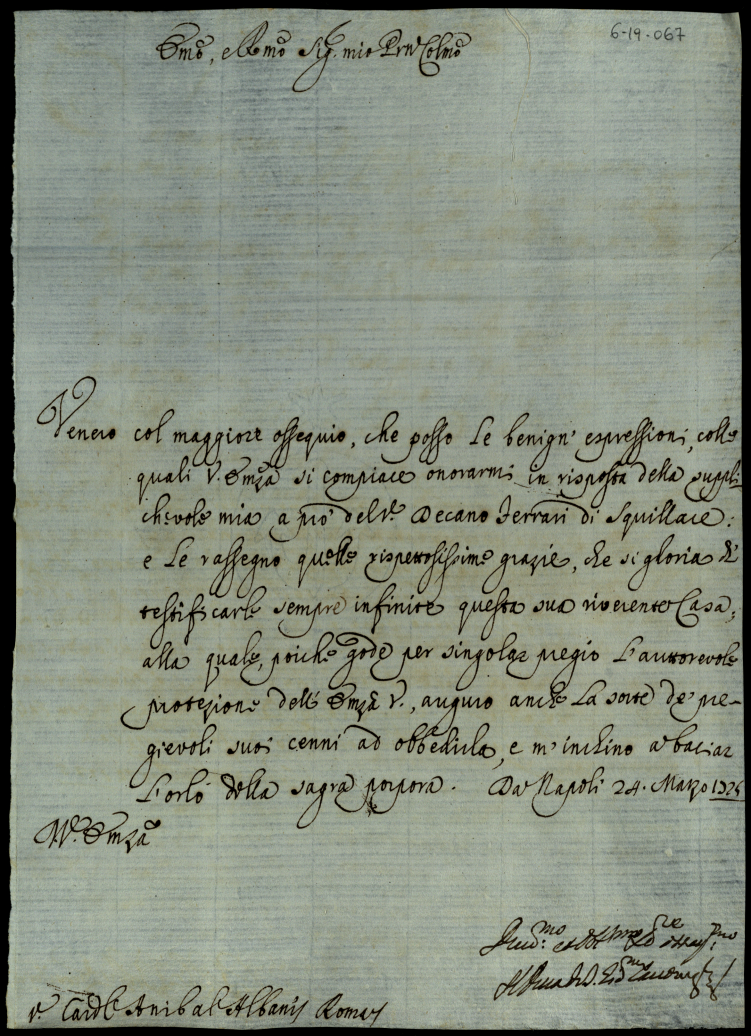 6-19-067
Emõ, e Rmõ Sig. mio Prõn Colmõ
Venero col maggiore ossequio, che posso le benign' espressioni, colle
quali V. Emza si compiace onorarmi in risposta della suppli
chevole mia a prò del V. Decano Ferrari di Squillace:
e le rassegno quelle rispettosissime grazie, che si gloria di
testificarle sempre infinite questa sua riverente Casa;
alla quale, poiche gode per singolar pregio l'autorevole
protezione dell' Emza V., auguro anche la sorte de' pre-
gievoli suoi cenni ad obbedirla, e m'inchino a baciar
l'orlo della sagra porpora. Da Napoli 24. Marzo
V. Emza
Card. Anibal Albani Roma